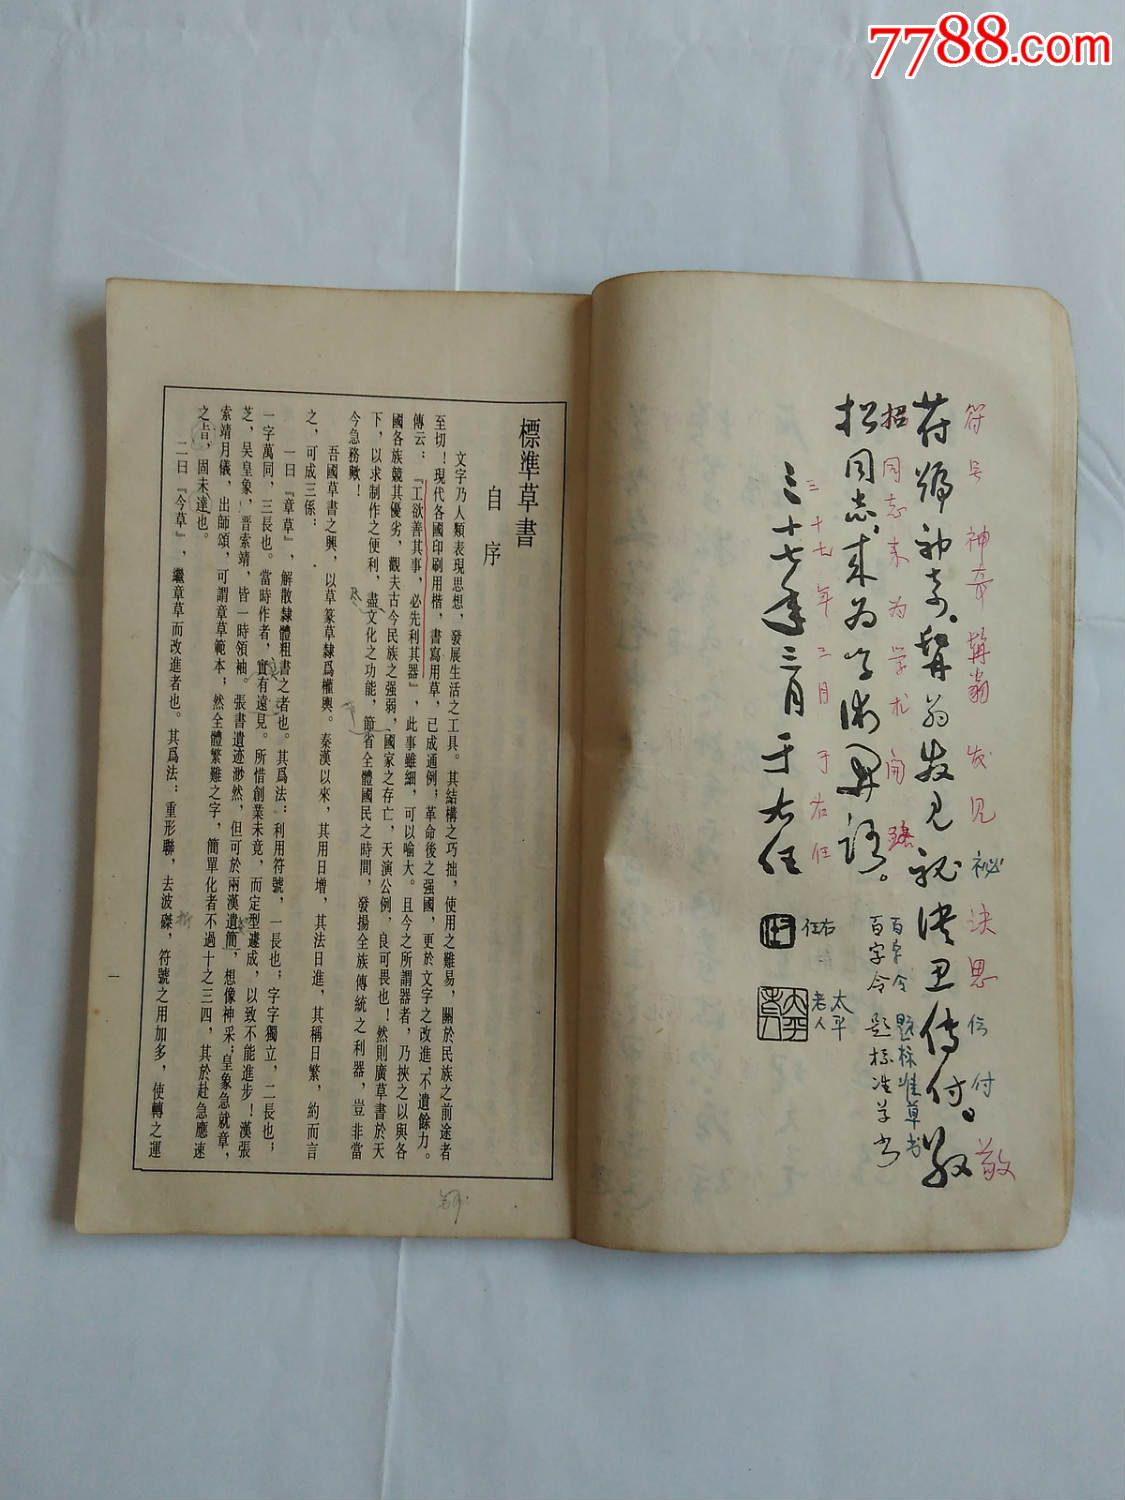 7788.com
符號神奇。髯翁發見秘訣思傳付。敬
招同志。來為學術開路。
三十七年三月 于右任
符号神奇髯翁发见祕诀思传付敬
招同志来为学术开路
三十七年三月于右任
百字令题标准草书
百字令题标准草书
右任
太平老人
標準草書
自序
文字乃人類表現思想，發展生活之工具。其結構之巧拙，使用之難易，關於民族之前途者
至切！現代各國印刷用楷，書寫用草，已成通例；革命後之强國，更於文字之改進，不遺餘力。
傳云：『工欲善其事，必先利其器』，此事雖細，可以喻大。且今之所謂器者，乃挾之以與各
國各族競其優劣，觀夫古今民族之强弱，國家之存亡，天演公例，良可畏也！然則廣草書於天
下，以求制作之便利，盡文化之功能，節省全體國民之時間，發揚全族傳統之利器，豈非當
今急務歟！
吾國草書之興，以草篆草隸爲權輿。秦漢以來，其用日增，其法日進，其稱日繁，約而言
之，可成三係：
一曰『章草』，解散隸體粗書之者也。其爲法：利用符號，一長也；字字獨立，二長也；
一字萬同，三長也。當時作者，實有遠見。所惜創業未竟，而定型遽成，以致不能進步！漢張
芝，吳皇象，晋索靖，皆一時領袖。張書遺迹渺然，但可於兩漢遺簡，想像神采；皇象急就章，
索靖月儀，出師頌，可謂章草範本；然全體繁難之字，簡單化者不過十之三四，其於赴急應速
之旨，固未達也。
二曰『今草』，繼章草而改進者也。其爲法：重形聯，去波磔，符號之用加多，使轉之運
一